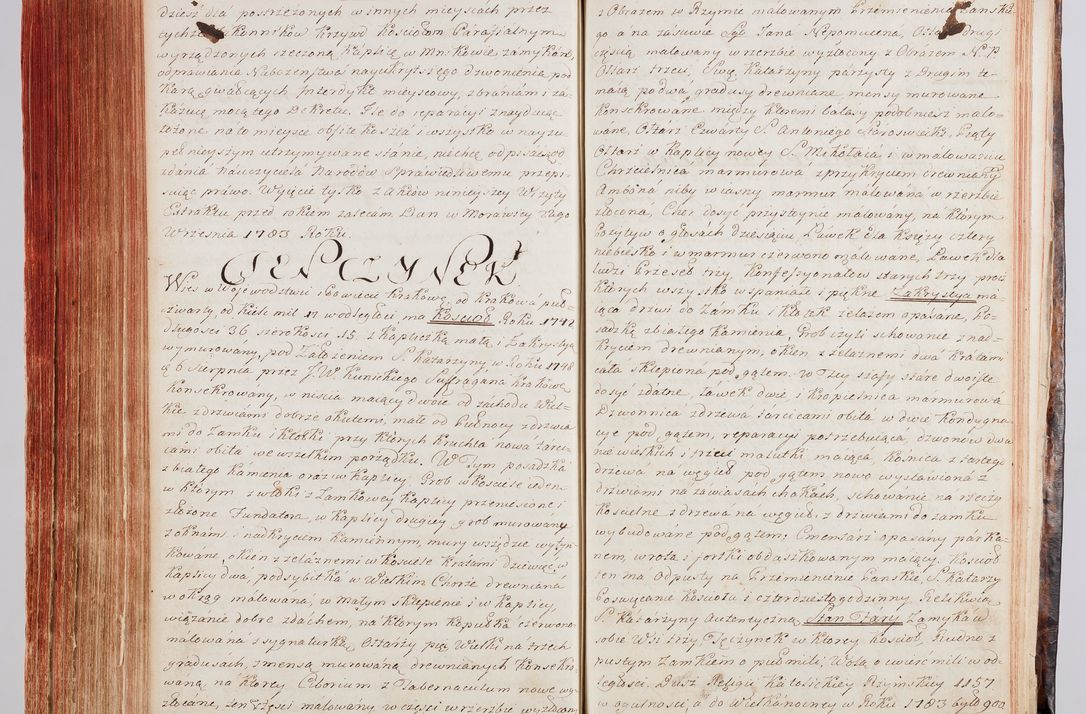 dziesz dla postrzeżonych w innych mieyscach przez
cych Konników Krzywd Kosciołom Parafialnym
wyrządzonych rzeczoną Kaplicę w Mnikowie zamykam,
odprawiania Nabożenstwá nayukrytszego dzwonienia pod
Karą gwałcących Interdykt mieyscowy, zbraniam i za-
Każuię mocą tego Dekretu. Ile do reparácyi znayduią
łożone na to mieysce obfite koszta i wszystko w nayzu-
pełnieyszym utrzymywane stánie, niechcę od pisać od
zdania nauczyciela Narodow Sprawiedliwemu przepi-
suiąc práwo. Wyięcie tylko z aktow ninieyszey Wizyty
Extraktu przed rokiem zalecam Dan w Morawicy
Wrzesnia 1783 Roku.
TENCZYNEK
Wies w Woiewodztwie i Powiecie Krakows: od Krakowá puł
czwarty od Kielc mil 17 w odległości ma Kosciół Roku 1742
długości 36 szerokości 15, z Kapliczką małą i Zakrystyą
wymurowány, pod Założeniem S. Katarzyny w Roku 1748
d. 6 Sierpnia przez J.W. Kunickiego Suffragana Krakows:
Konsekrowany, w niscia maiący dwoie od zachodu Wiel-
kie z drzwiami dobrze okutemi, małe od Pułnocy z drzwia-
mi do Zamku i Kłotki przy których kruchta nowa tárci-
cami obita we wszelkim porządku. W Tym posadzka
z białego Kamenia oraz i w Kaplicy. Grob w Kosciele ieden
w którym zwłoki z Zamkowey Kaplicy przeniesione i
złożone Fundatora, w Kaplicy drugiey grob murowany
z oknami i nadkryciem Kamiennym, mury wszędzie wytyn-
kowáne, okien z żelaznemi w Kosciele Kratami Dziewięć, w
Kaplicy dwá, podsybitka w Wielkim Chorze drewniana
w oktag malowána, w małym sklepienie i w Kaplicy,
wiązanie dobre z dachem, na którym Kopułka czerwono
malowaná z sygnaturką, Ołtarzy pięć Wielki na trzech
gradusách, z mensą murowáną drewnianych Konsekro-
wáną na Ktorey Ciborium z Tabernaculum nowe wy-
złacáne, ten Częścią malowány w części w rzezbie wyzłacany
z Obrazem w Rzymie malowanym Przemienienia Panskie-
go a na zasuwie Sgo Jana Nepomucena, Ołtarz drugi
częścią malowany w rzezbie wyzłocony z Obrazem N. P.
Ołtarz trzeci, Swey Katarzyny párzysty z Drugim te-
maią po dwa gradusy drewniane, mensy murowane
konsekrowáne między Ktoremi bálasy podobniesz malo-
wáne, Ołtarz Czwarty S. Antoniego Staroswiecki, Piąty
Ołtarz w Kaplicy nowey S. Mikołaiá i wmalowaniu
Chrzcielnica marmurowa z przykryciem drewnianym
Ambona niby wiasny marmur malowána w rzezbie
złocona, Chor dosyć przystoynie malowany, na którym
Pozytyw o głosách dziesięciu. Ławek dla Księży cztery
niebiesko i w marmur czerwono malowane, Ławek dla
ludzi Przeseb trzy, Konfessyonałow starych trzy proś
których wszystko wspaniałe i piękne. Zakrystya ma-
iąca drzwi do Zamku i Kłotek żelazem opásane, Po-
sádzką z białego kamenia, Grob czyli schowanie z nad-
kryciem drewnianym, okien z żelaznemi dwá Kratam
cała sklepiona pod gątem. w Tey szafy stáre dwoiste
dosyć zdatne, Ławek dwie i Kropielnica marmurowa
Dzwonnica zdrzewa tarcicami obita w dwie Kondygna-
cye pod gątem, reparacyi potrzebuiąca, dzwonów dwa
nie wielkich i trzeci malutki maiąca Kosnica z tartego
drzewá na węgieł pod gątem nowo wystawiona z
drzwiami na zawiasach i hakách, schowanie na rzeczy
Koscielne z drzewa na węgieł, z drzwiami do Zamku
wybudowáne pod gątem, Cmentarz opasany párka-
nem, wrota i fortki obdaszkowanym maiący, Kosciół
ten má Odpusty na Przemienienie Panskie, S. Katarzy
Poswięcanie Koscioła i czterdziestogodzinny, Relikwia
S. Katarzyny Autentyczna. Stan Fary Zamyka w
sobie Wśi trzy Tęczynek w którey kosciół, Rudno z
pustym Zamkiem o pułmili, Wola o cwierć mili w od-
ległości. Dusz Religij Katolickiey Rzymskiey 1157
w ogulności, a do Wielkánocney w Roku 1783 było 900